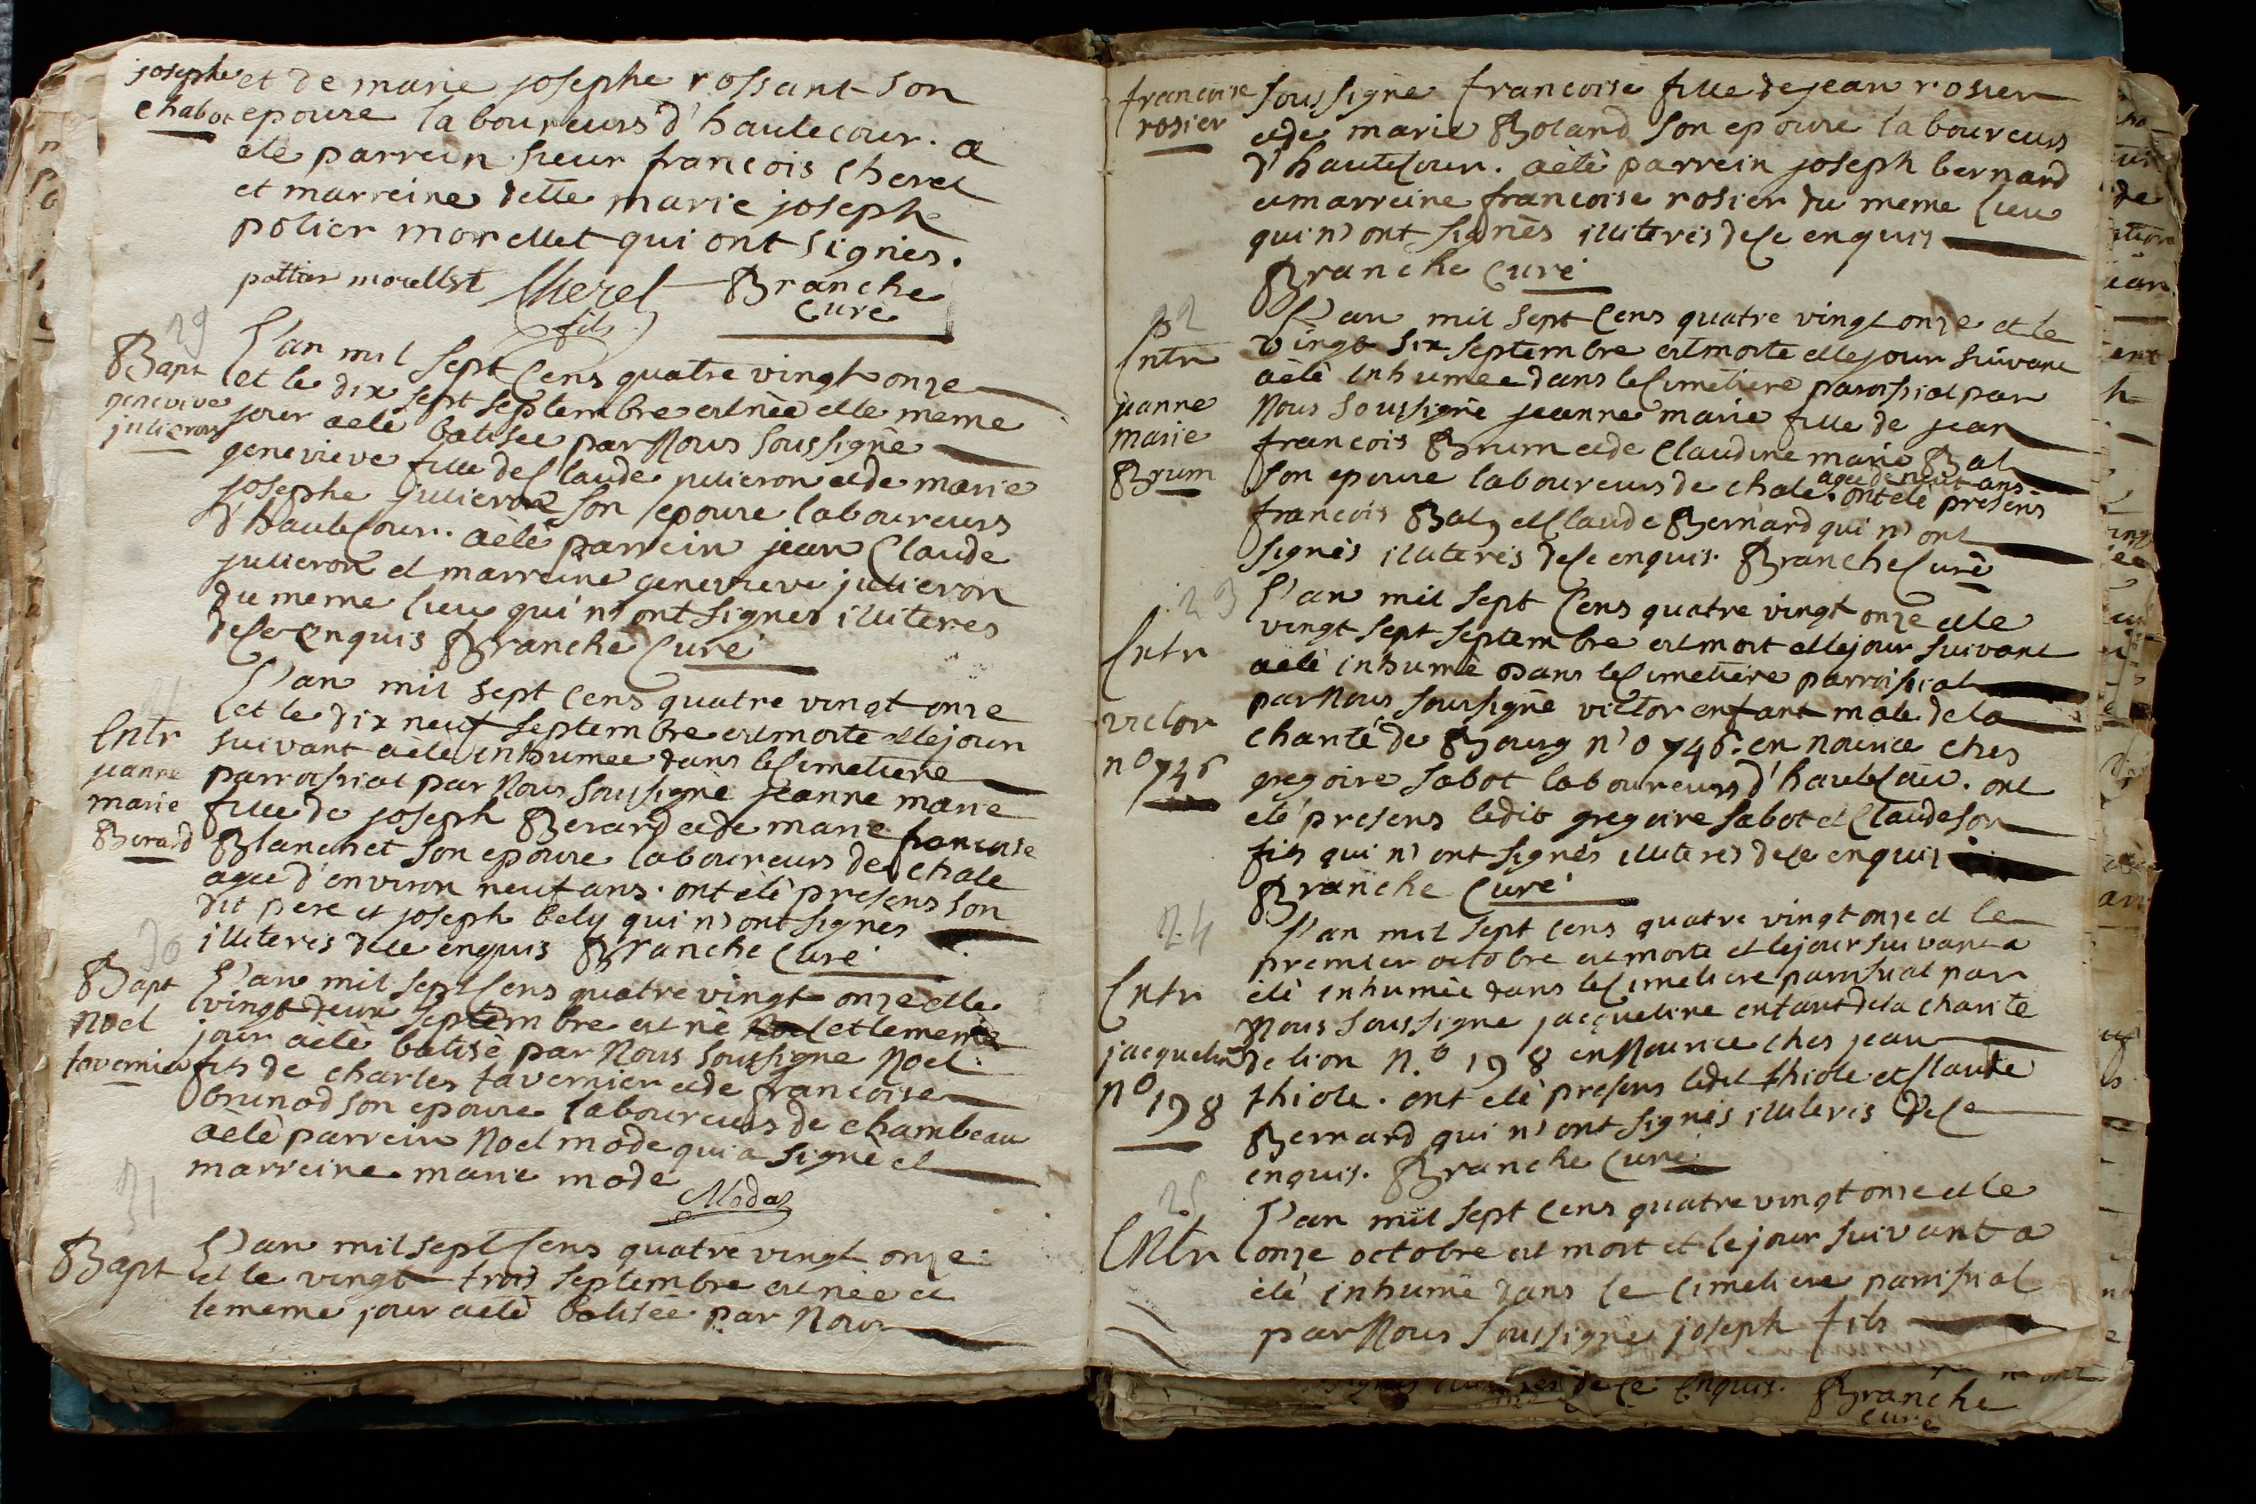 josephe
chabot
et de marie josephe rossant son
epouse laboureurs d'hautecour. a
été parrein sieur francois cherel
et marreine dette marie josephe
potier morellet qui ont signiés.
pottier morellet Cherel fils Branche
curé
29
Bapt
genevive
julieron
L'an mil sept Cens quatre vingt onze
et le dix sept septembre est née et le meme
jour a eté batisée par Nous soussigné
genevieve fille de Claude julieron et de marie
josephe julieron son epouse laboureurs
d'hauteCour. a èté parrein jean Claude
julieron et marreine genevieve julieron
du meme lieu qui n'ont signés illiteres
de Ce enquis Branche Curé
Entr
jeanne
marie
Berard
L'an mil sept Cens quatre vingt onze
et le dix neuf septembre est morte et le jour
suivant a èté inhumee dans le Cimetiere
parroissial par Nous soussigné jeanne marie
fille de joseph Berard et de marie francoise
Blanchet son epouse laboureurs de Chale
agée d'environ neuf ans. ont èté presens son
dit pere et joseph bely qui n'ont signés
illiteres de ce enquis Branche Curé
30
Bapt
Noel
tavernier
L'an mil sept Cens quatre vingt onze et le
vingt deux septembre est né Noel et le meme
jour a èté batisé par Nous soussigné Noel
fils de charles tavernier et de francoise
brunod son epouse laboureurs de chambeau
a èté parrein Noel mode qui a signé et
marreine marie mode
Modas
31
Bapt
L'an mil sept Cens quatre vingt onze
et le vingt trois septembre est née et
le meme jour a eté batisée par Nous
francoise
rosier
soussigné francoise fille de jean rosier
et de marie Boland son epouse laboureurs
d'hauteCour. a èté parrein joseph bernard
et marreine francoise rosier du meme lieu
qui n'ont signès illiterés de Ce enquis
Branche Curé
22
Entr
jeanne
marie
Brum
L'an mil sept Cens quatre vingt onze et le
vingt six septembre est morte et le jour suivant
a èté inhumee dans le Cimetiere paroissial par
Nous soussigné jeanne marie fille de jean
francois Brum et de Claudine marie Bal
son epouse laboureurs de chale. agée de neuf ans. ont eté presens
francois Bal et Claude Bernard qui n'ont
signès illiterés de Ce enquis. Branche Curé
23
Entr
victor
n° 746
L'an mil sept Cens quatre vingt onze et le
vingt sept septembre est mort et le jour suivant
a eté inhumé dans le Cimetiere parroissial
par Nous soussigné victor enfant male de la
charité de Bourg n°o 746. en nourice ches
gregoire sabot laboureurs d'hauteCour. ont
eté presens ledit gregoire sabot et Claude son
fils qui n'ont signés illiteres de Ce enquis
Branche Curé
24
Entr
jacqueline
n° 198
L'an mil sept Cens quatre vingt onze et le
premier octobre est morte et le jour suivant a
èté inhumée dans le Cimetiere paroissial par
Nous soussigné jacqueline enfant de la charité
de lion N.° 198 en Nourice ches jean
thiole. ont eté presens ledit thiole et Claude
Bernard qui n'ont signés illiterés de Ce
enquis. Branche Curé
25
Entr
L'an mil sept Cens quatre vingt onze et le
onze octobre est mort et le jour suivant a
èté inhumé dans le Cimetiere paroissial
par Nous soussigné joseph fils
de Ce enquis. Branche
curé